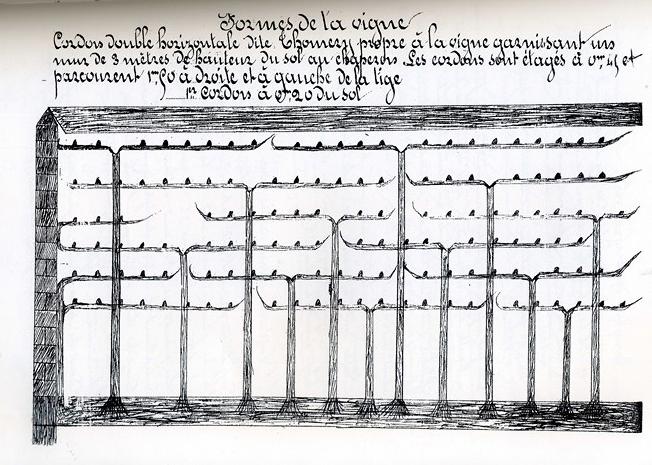 Formes de la vigne
Cordon double horizontale dite Thomery propre à la vigne garnissant un
mur de 3 mètres de hauteur du sol au chaperon Les cordons sont étagés à 0m45 et
parcourent 1m50 à droite et à gauche de la tige
1er Cordon à 0m20 du sol